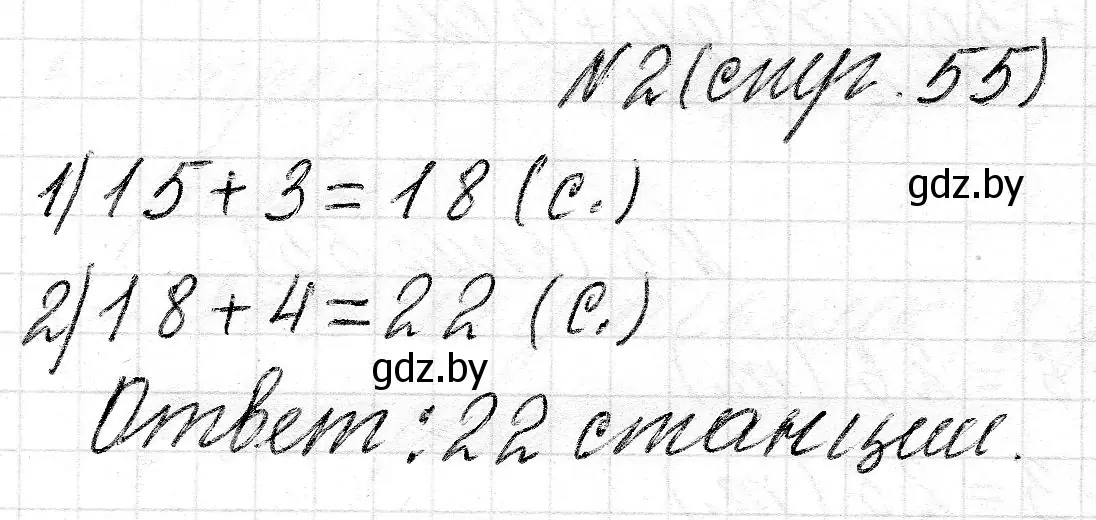 №2 (стр. 55)
1) 15+3=18 (с.)
gdz.by
2) 18+4=22 (с.)
gdz.by
Ответ: 22 станции.